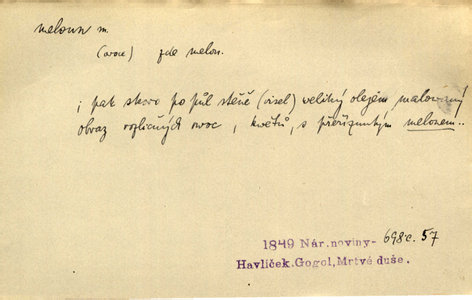 meloun m.
(ovoce) zde melon.
i pak skoro po půl stěně (visel) veliký olejem malovaný
obraz rozličných ovoc, květů, s přeříznutým melonem..
1849 Nár. noviny- 698 c. 57
Havlíček. Gogol, Mrtvé duše.